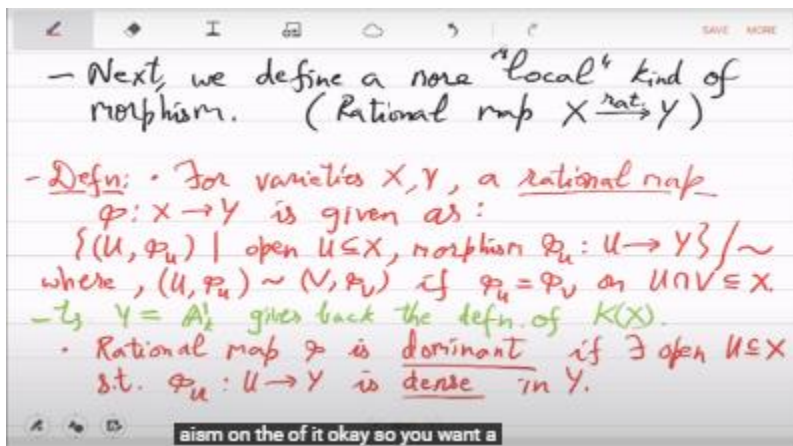 SAVE MORE
- Next, we define a more "local" kind of
morphism. (Rational map X rat.→ Y)
- Defn: · For varieties X, Y, a rational map
φ: X → Y is given as:
{(U, φ_U) | open U ⊆ X, morphism φ_U : U → Y}/~
where, (U, φ_U) ~ (V, φ_V) if φ_U = φ_V on U∩V ⊆ X.
Y = A¹_k gives back the defn. of K(X).
· Rational map φ is dominant if ∃ open U ⊆ X
s.t. φ_U : U → Y is dense in Y.
aism on the of it okay so you want a